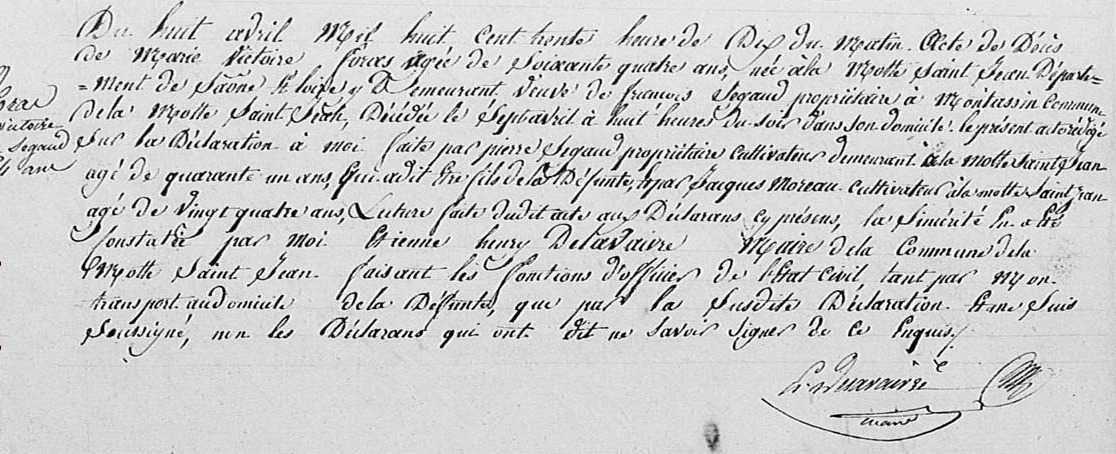 Du huit avril Mil huit cent trente heure de Dix du Matin. Acte de Décès
de Marie Victoire Foras agée de Soixante quatre ans, née à la Motte Saint Jean Départe=
=ment de Saône & loire y Demeurant veuve de françois Segaud propriétaire à Montassin Commun
dela Motte Saint Jean, Décédée le Sept avril à huit heures du Soir dans son domicile. le présent acte rédigé
Sur la Déclaration à moi faite par pierre Segaud propriétaire Cultivateur demeurant à la Motte Saint Jean
agé de quarante un ans, qui a dit être fils de la Défunte, & par Jacques Moreau cultivateur à la motte Saint Jean
agé de Vingt quatre ans, Lecture faite dudit acte aux Déclarans cy présens, la Sincérité En a été
Constatée par moi Etienne henry Delavaivre Maire dela Commune dela
Motte Saint Jean faisant les fonctions d'officier de l'Etat Civil, tant par Mon
transport au domicile dela Défunte, que par la Susdite Déclaration Et me Suis
Soussigné, non les Déclarans qui ont dit ne Savoir Signer de ce Enquis.
Victoire
Segaud
ans
E. h Delavaivre
maire